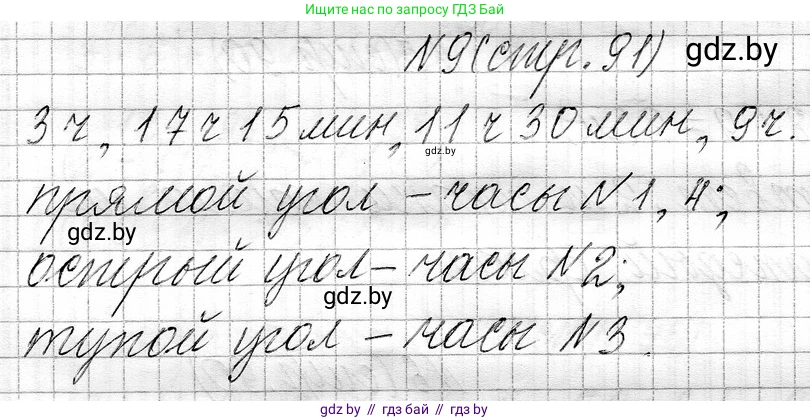 Ищите нас по запросу ГДЗ Бай
№9(стр. 91)
gdz.by
3 ч, 17 ч 15 мин, 11 ч 30 мин, 9 ч.
gdz.by
прямой угол – часы №1, 4;
gdz.by
острый угол – часы №2;
gdz.by
тупой угол – часы №3.
gdz.by // гдз бай // gdz.by